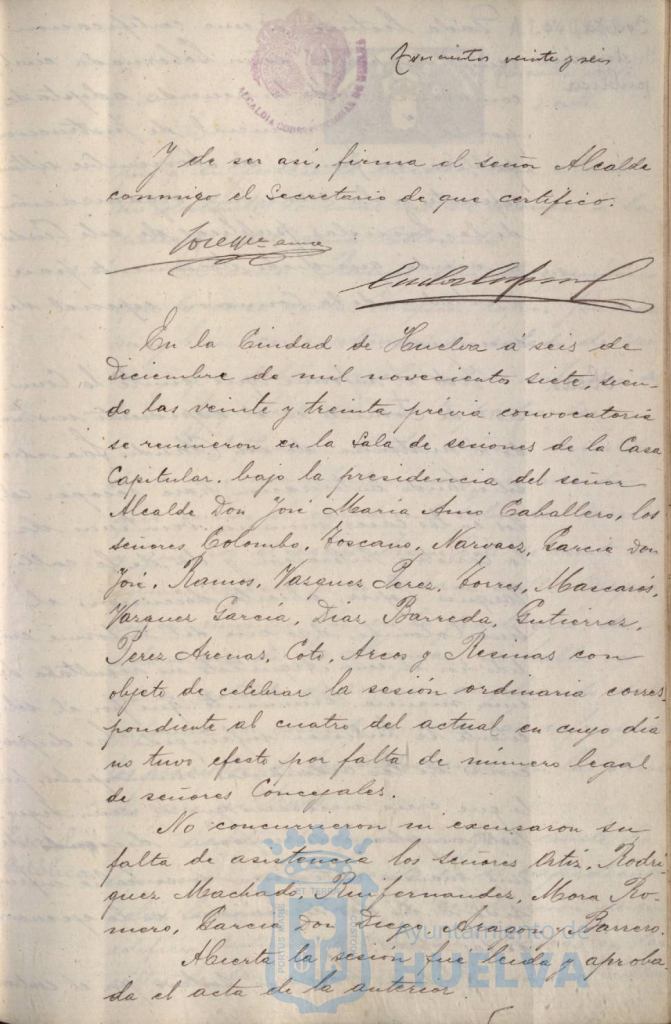 Trescientos veinte y seis
ALCALDIA CONSTITUCIONAL DE HUELVA
Y de ser así, firma el señor Alcalde
conmigo el Secretario de que certifico.
En la Ciudad de Huelva á seis de
Diciembre de mil novecientos siete, sien-
do las veinte y treinta prévia convocatoria
se reunieron en la Sala de sesiones de la Casa
Capitular, bajo la presidencia del señor
Alcalde Don José Maria Amo Caballero, los
señores Colombo, Toscano, Narvaez, Garcia Don
José, Ramos, Vazquez Perez, Torres, Mascarós,
Vazquez García, Diaz Barreda, Gutierrez,
Perez Arenas, Coto, Arcos y Resinas con
objeto de celebrar la sesión ordinaria corres-
pondiente al cuatro del actual en cuyo día
no tuvo efecto por falta de número legal
de señores Concejales.
No concurrieron ni excusaron su
falta de asistencia los señores Ortiz, Rodri-
guez Machado, Ruifernandez, Mora Ro-
mero, Garcia Don Diego, Aragon y Barrero.
Abierta la sesión fué leida y aproba-
da el acta de la anterior.
Ayuntamiento de
HUELVA